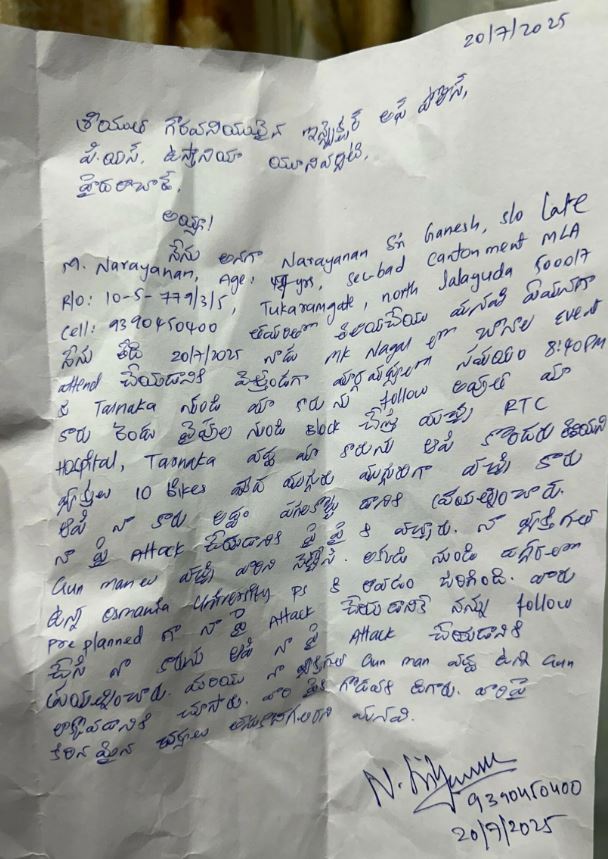 20/7/2025
శ్రీయుత గౌరవనీయులైన ఇన్స్పెక్టర్ ఆఫ్ పోలీస్,
పి.యస్. ఉస్మానియా యూనివర్సిటీ,
హైదరాబాద్.
అయ్యా!
నేను అనగా Narayanan Sri Ganesh, s/o Late
M. Narayanan, Age: yrs, Sec-bad Cantonment MLA
R/o: 10-5-779/3/5, Tukaramgate, north Lalaguda 500017
Cell: 9390450400 తెలియచేయు మనవి ఏమనగా
నేను తేది 20/7/2025 నాడు MK Nagar లో బోనాల event
attend చేయడానికి వెళ్తుండగా సమయం 8:40PM
కి Tarnaka నుండి నా కారును follow అవుతూ మా
కారు రెండు వైపుల నుండి Block చేస్తూ వచ్చి RTC
Hospital, Tarnaka వద్ద మా కారును ఆపి కొందరు
వ్యక్తులు 10 Bikes మీద ముగ్గురు ముగ్గురుగా వచ్చి కారు
ఆపి నా కారు అద్దం పగలకొట్టడానికి ప్రయత్నించారు.
నా పై Attack చేయడానికి పై పై కి వచ్చారు. నా వ్యక్తిగత
Gun manలు వచ్చి వారిని నెట్టేసి. అక్కడి నుండి దగ్గరలో
ఉన్న Osmania University PS కి రావడం జరిగింది. వారు
Pre planned గా నా పై Attack చేయడానికే నన్ను follow
చేసి నా కారును ఆపి నా పై Attack చేయడానికి
ప్రయత్నించారు. మరియు నా వ్యక్తిగత Gun man వద్ద ఉన్న Gun
లాక్కోవడానికి చూసారు. వారి పైకి గొడవకి దిగారు. వారిపై
కఠినమైన చర్యలు తీసుకోవాలని మనవి.
9390450400
20/7/2025